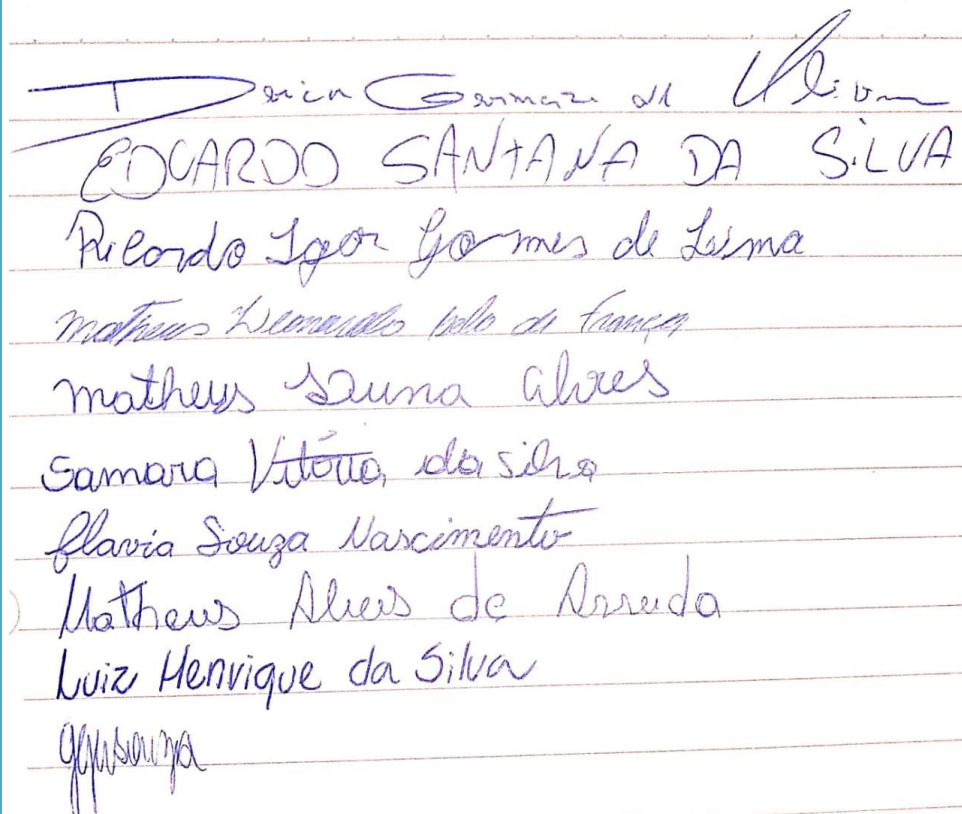 de
EDUARDO SANTANA DA SILVA
Ricardo Igor Gomes de Lima
matheus Leonardo de França
matheus Alves
Samara Vitória da silva
flavia Souza Nascimento
Matheus Alves de Arruda
Luiz Henrique da Silva